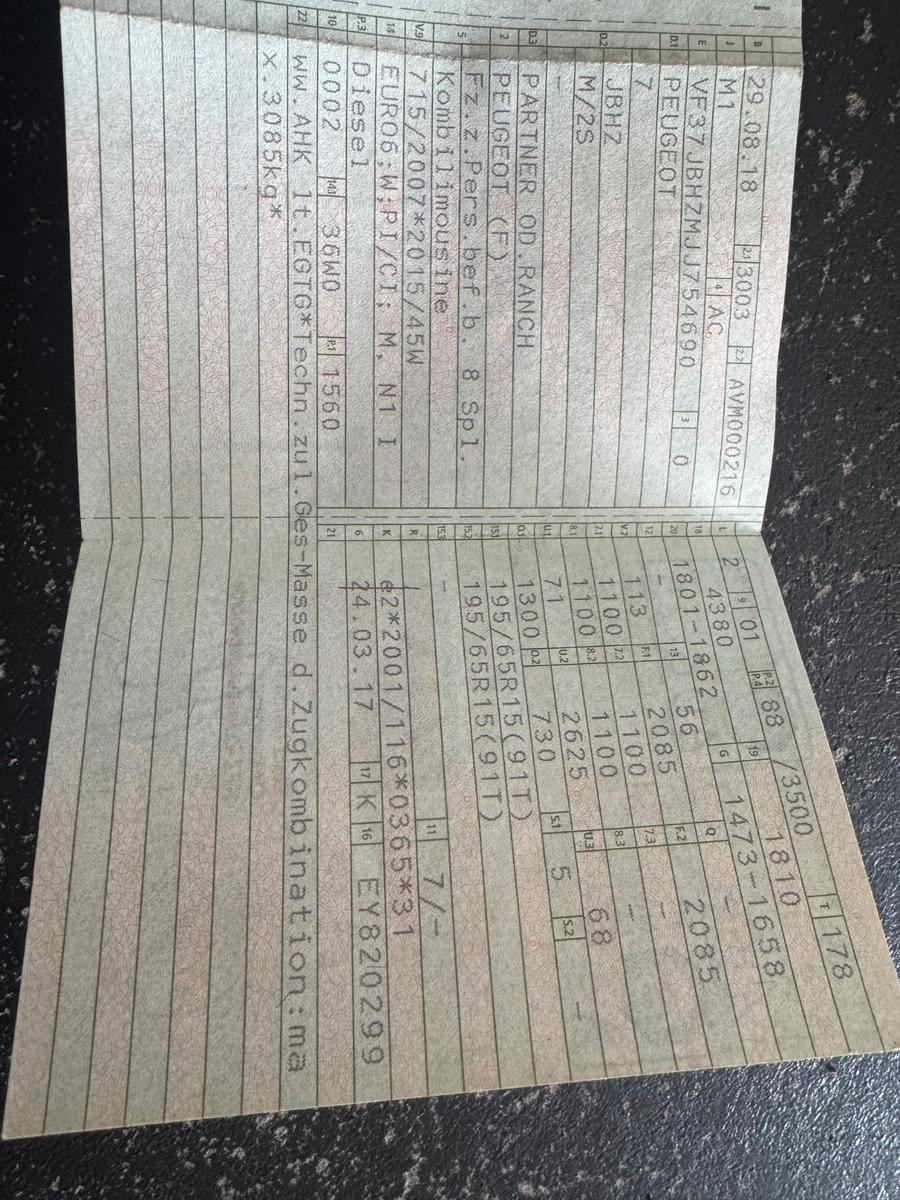 B 29.08.18 2.1 3003 2.2 AVM000216
J M1 4 AC
E VF37JBHZMJJ754690 3 0
D.1 PEUGEOT
7
D.2 JBHZ
M/2S
-
D.3 PARTNER OD.RANCH
2 PEUGEOT (F)
5 Fz.z.Pers.bef.b. 8 Spl.
Kombilimousine
V.9 715/2007*2015/45W
14 EURO6;W;PI/CI; M, N1 I
P.3 Diesel
10 0002 14.1 36W0 P.1 1560
22 ww.AHK lt.EGTG*Techn.zul.Ges-Masse d.Zugkombination:ma
x.3085kg*
L 2 9 01 P.2 P.4 88 /3500 T 178
18 4380 19 1810
20 1801-1862 G 1473-1658
12 - 13 56 Q -
V.7 113 F.1 2085 F.2 2085
7.1 1100 7.2 1100 7.3 -
8.1 1100 8.2 1100 8.3 -
U.1 71 U.2 2625 U.3 68
O.1 1300 O.2 730 S.1 5 S.2 -
15.1 195/65R15(91T)
15.2 195/65R15(91T)
15.3 -
R 11 7/-
K e2*2001/116*0365*31
6 24.03.17 17 K 16 EY820299
21